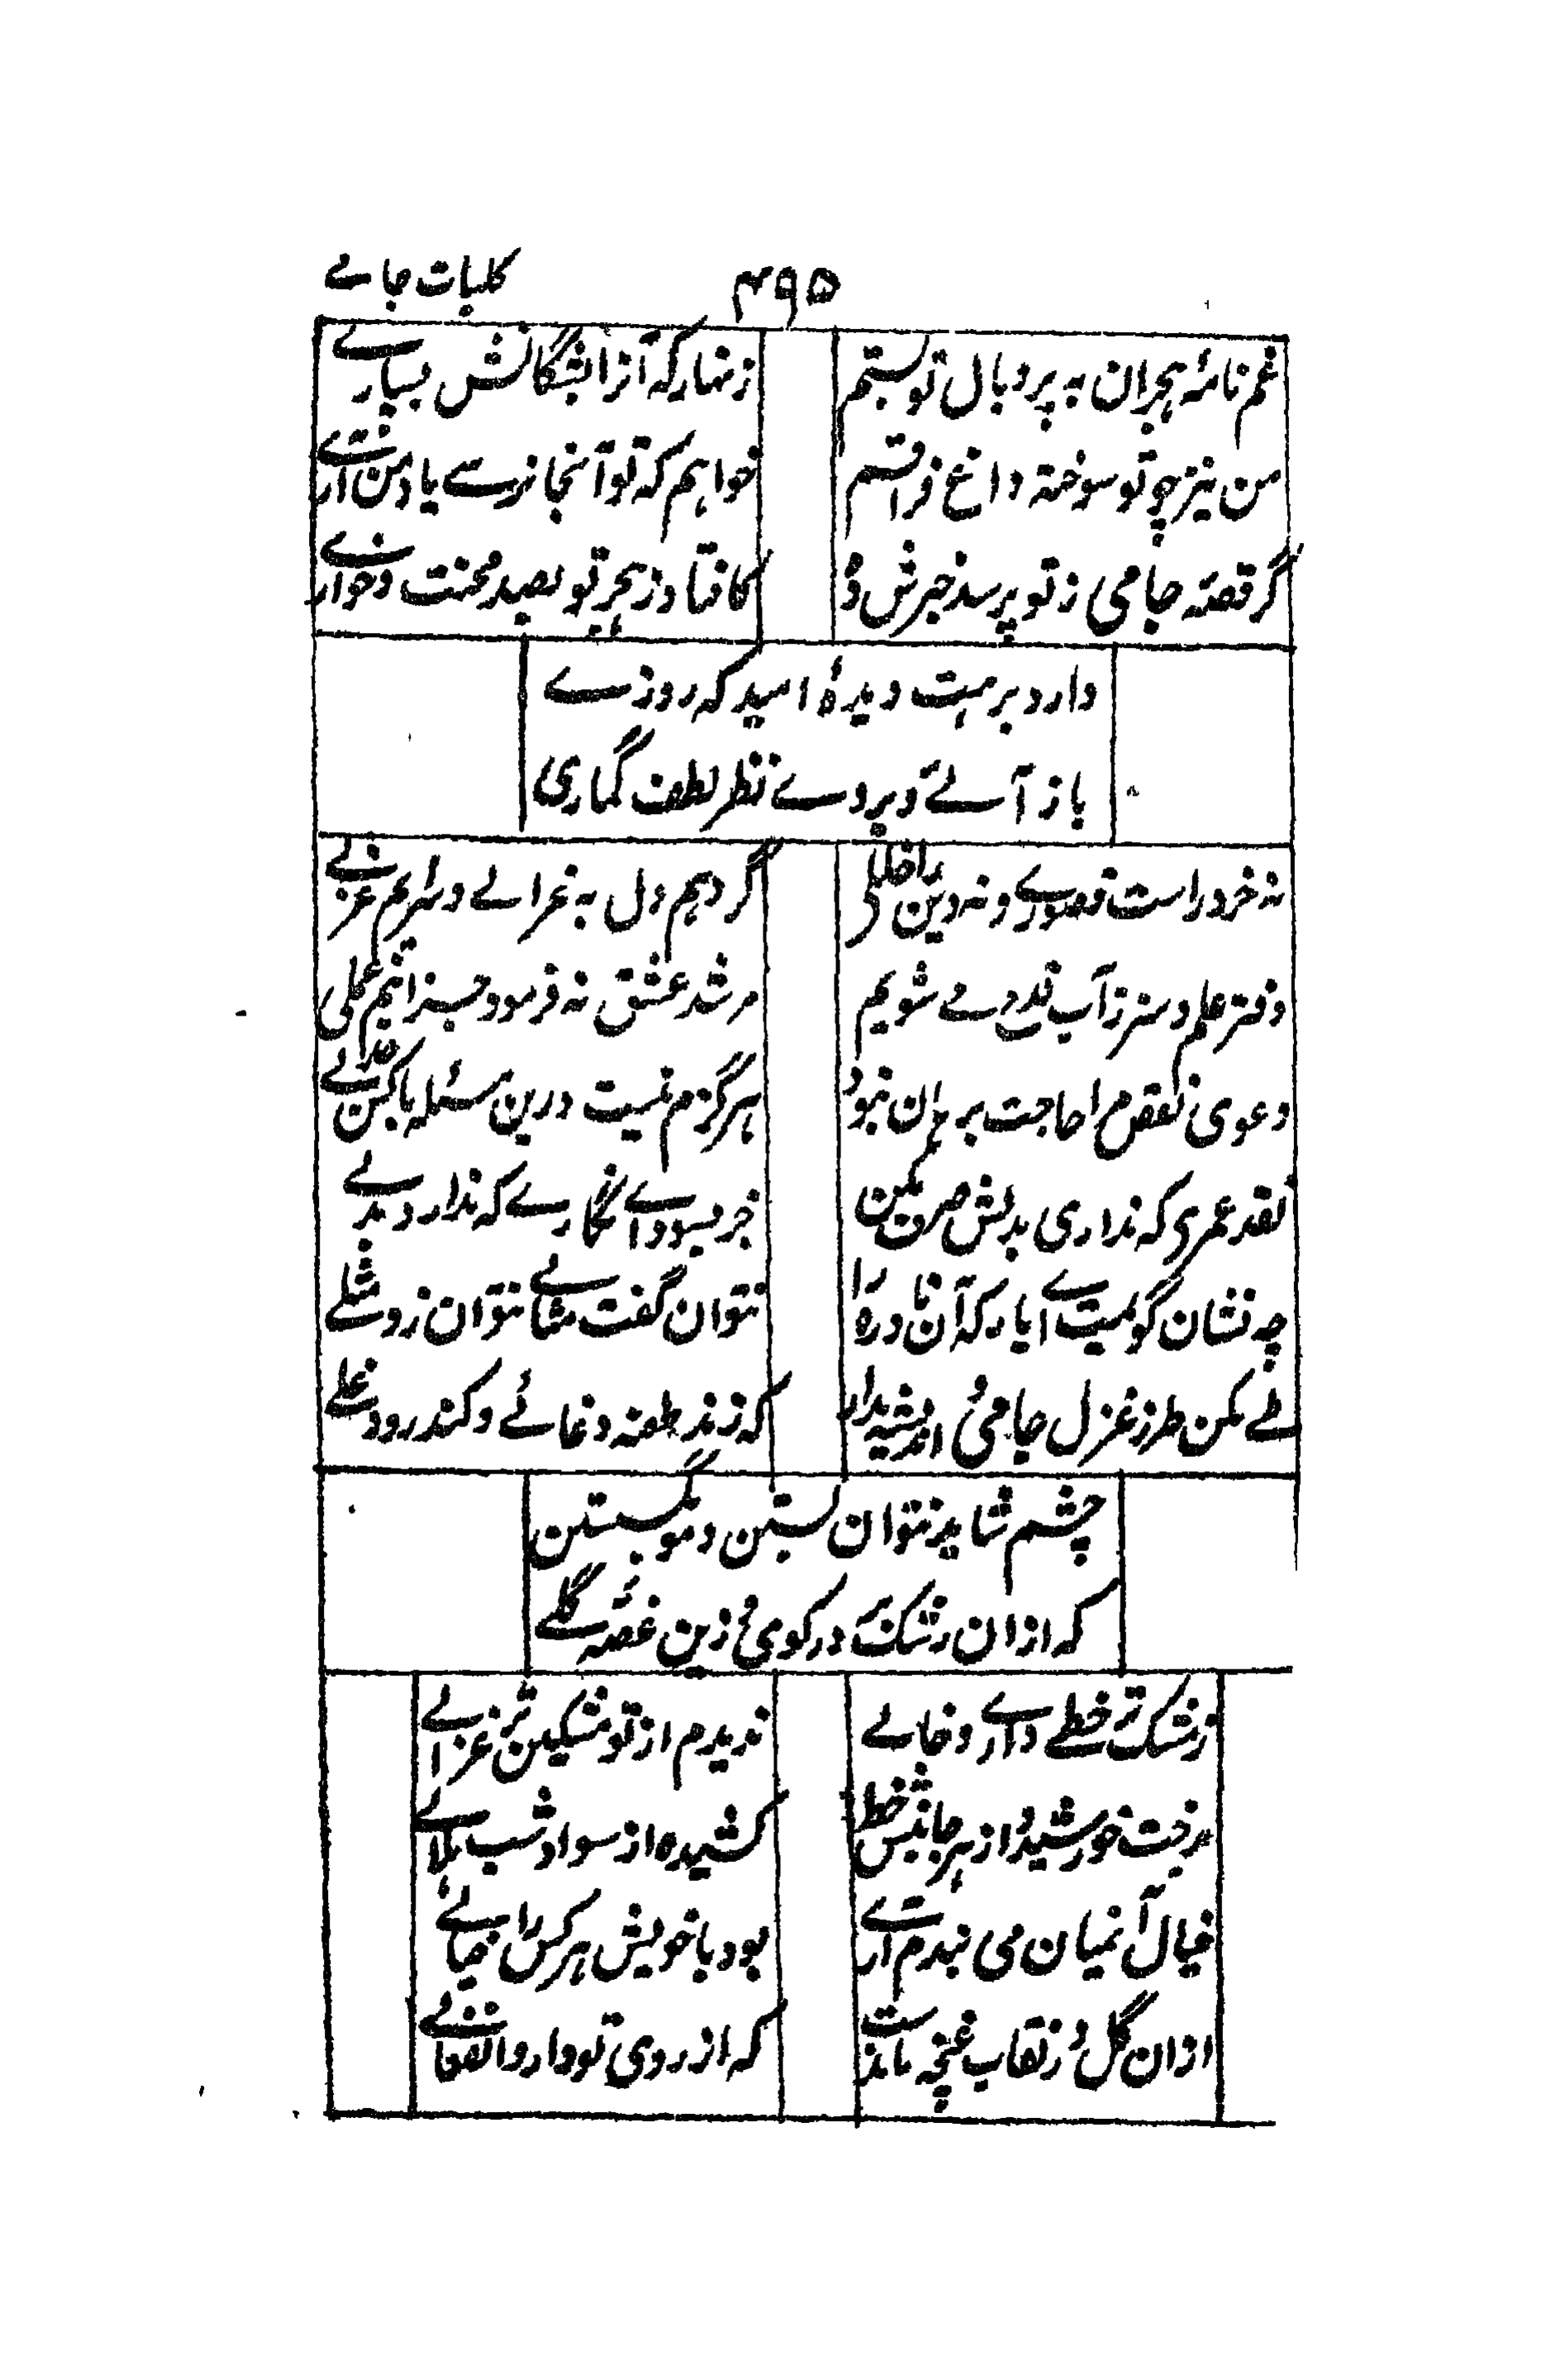 کلیات جامے
۴۹۵
غم نامۂ ہجران بہ پر و بال تو بستم
زنہار کہ آنرا بشگانش بسپارے
من نیز چو تو سوختۂ داغ فراقم
خواہم کہ تو آنجا رسے یاد من آرے
گر قصۂ جامی ز تو پرسد خبرش دہ
کافتاد ز ہجر تو بصد محنت و خوارے
دارد برہت دیدۂ امید کہ روزے
باز آئے و بروے نظر لطف گماری
نہ خرد راست قصورے و نہ دین را خللی
گر دہم دل بہ غزالے و سرایم غزلے
دفتر علم و ہنر ز آب قدح مے شویم
مرشد عشق نہ فرمود جز اینم عملی
دعوی نقص مرا حاجت برہان نبود
ہرگزم نیست درین مسئلہ با کس جدلے
نقد عمری کہ نداری بدلش صرف مکن
جز بسوداے نگارے کہ ندارد بدلے
چہ نشان گویمت اے یار کہ آن نادرہ را
نتوان گفت مثالے نتوان زد مثلے
طے مکن طرز غزل جامی و اندیشہ مدار
کہ زند طعنہ دغائے و کند رد دغلے
چشم شاہد نتوان بستن و مو بگسستن
کہ ازان رشک برد کوری و زین غصہ کلے
ز مشک تر خطے دارے و خالے
ندیدم از تو مشکین تر غزالے
رخت خورشید و از ہر جانبش خط
کشیدہ از سواد شب ہلالے
خیال آن میان می بندم آرے
بود با خویش ہر کس را خیالے
ازان گل در نقاب غنچہ ماندست
کہ از روی تو دارد انفعالے